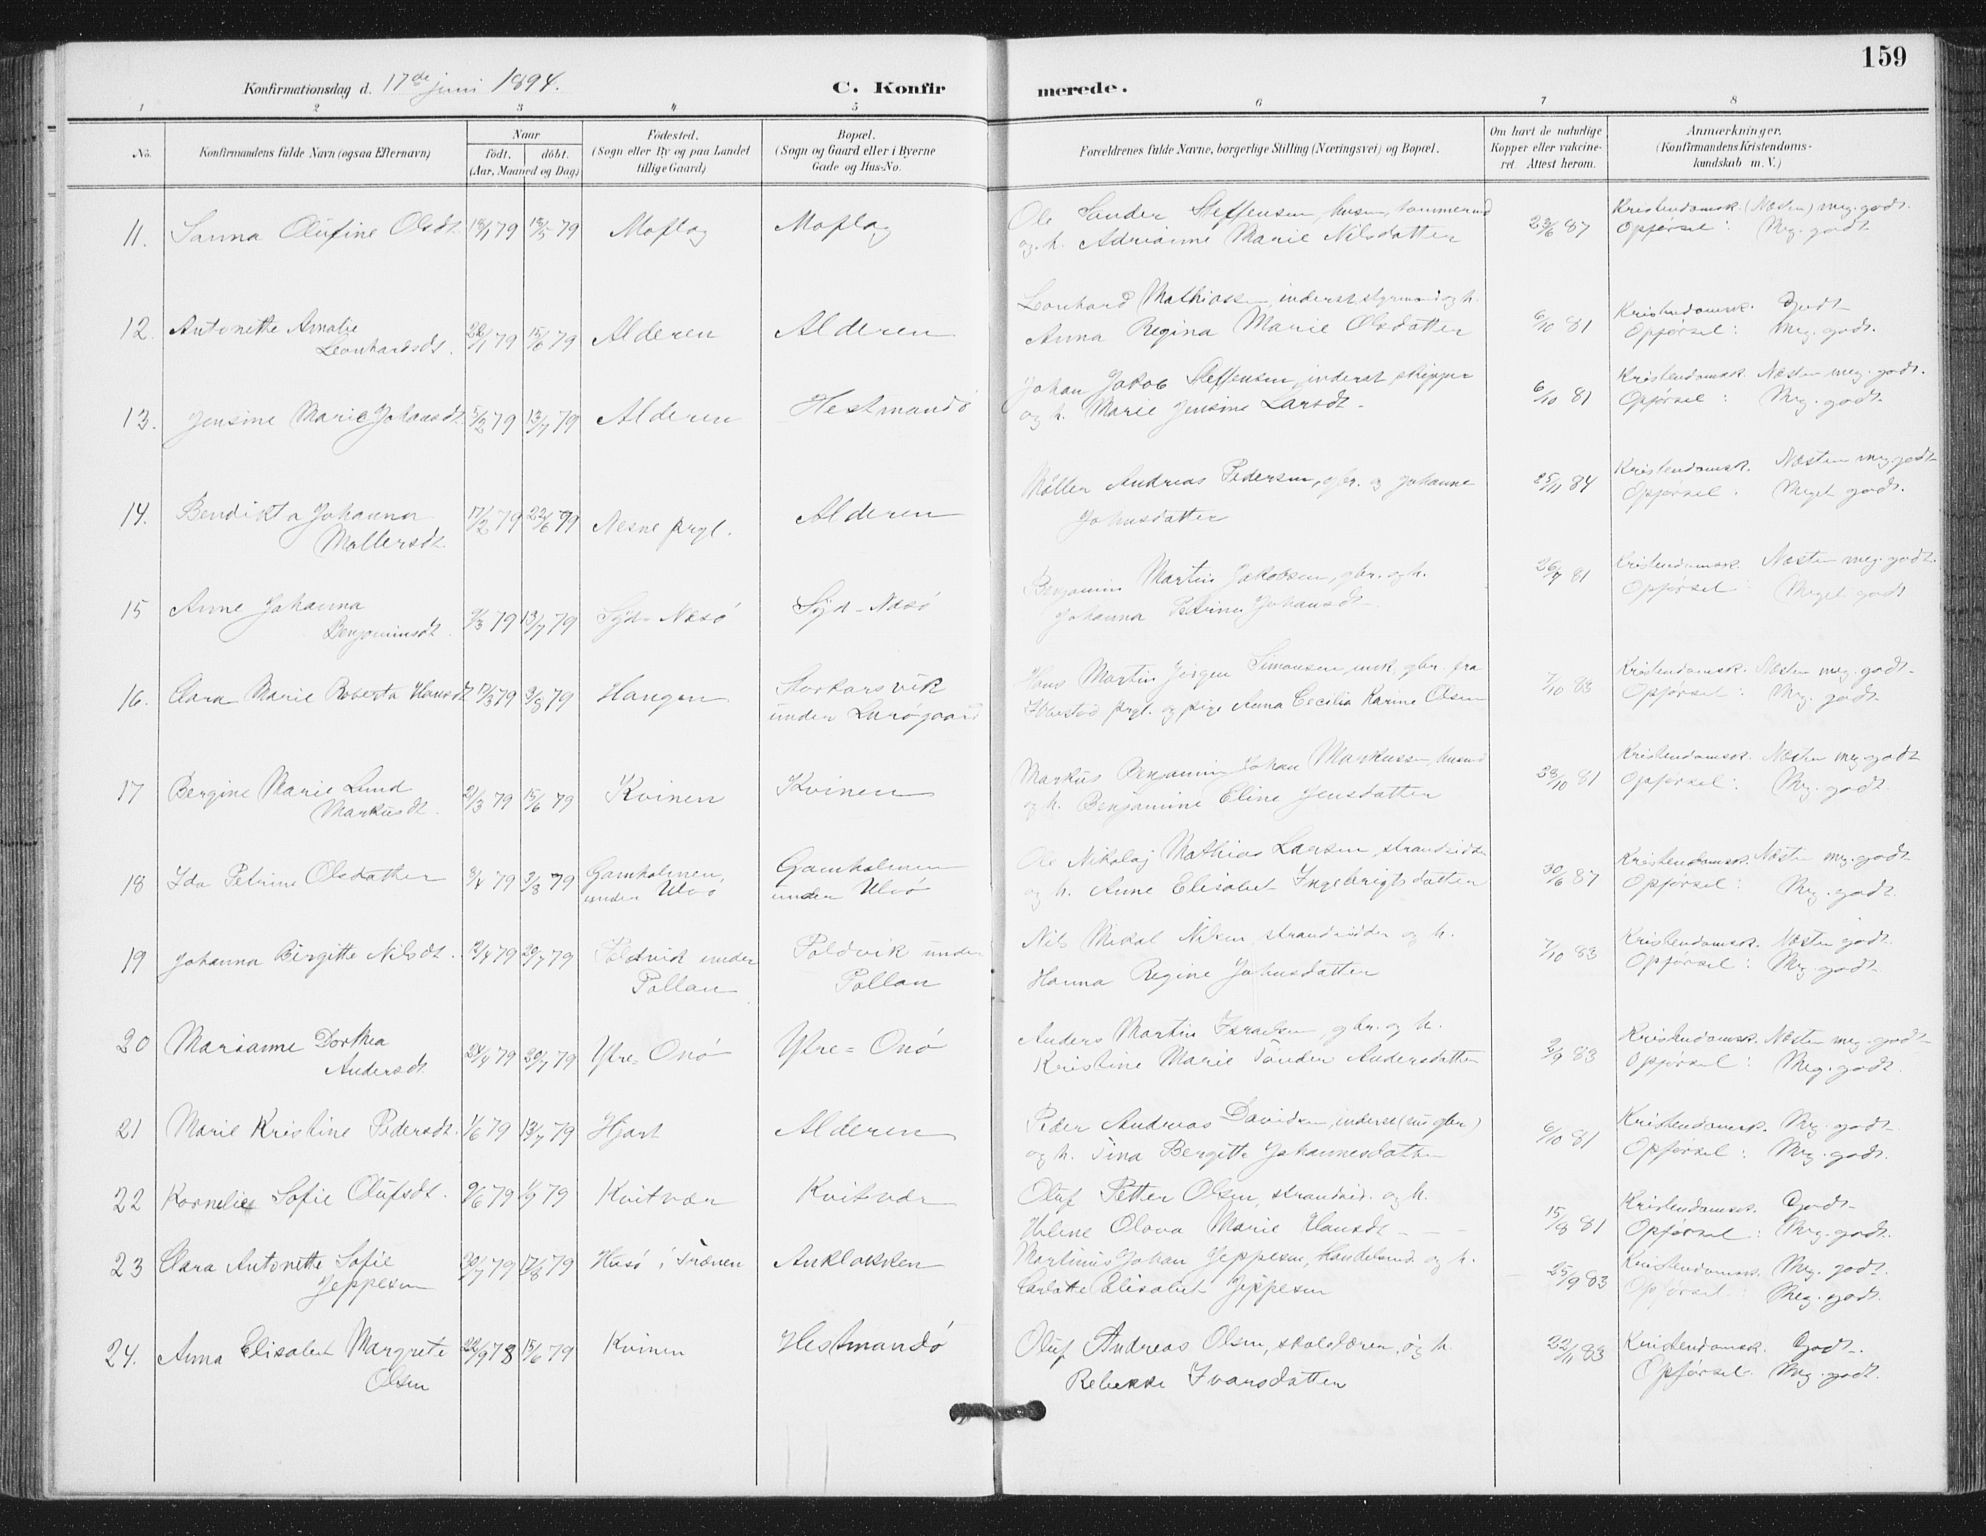 159
Konfirmationsdag d. 17de juni 1894.
C. Konfir merede.
1 2 3 4 5 6 7 8
No.
Konfirmandens fulde Navn (ogsaa Efternavn)
Naar
födt. döbt.
(Aar, Maaned og Dag)
Födested.
(Sogn eller By og paa Landet
tillige Gaard)
Bopæl.
(Sogn og Gaard eller i Byerne
Gade og Hus-No.
Forældrenes fulde Navne, borgerlige Stilling (Næringsvei) og Bopæl.
Om havt de naturlige
Kopper eller vakcine-
ret Attest herom.
Anmærkninger.
(Konfirmandens Kristendoms-
kundskab m. V.)
Ole Sander Steffensen, husm, tømmermd Kristendomsk. (Næsten) meg. godt.
11. Sanna Olufine Olsdt. 18/1 79 18/5 79 Moflag Moflag og h. Adrianne Marie Nilsdatter 23/6 87 Opførsel: Meg. godt
Leonhard Mathiassen, inderst, styrmand og h. Kristendomsk. Godt
12. Antonette Amalie 79 15/6 79 Alderen Alderen Anna Regina Marie Olsdatter 6/10 81 Opførsel: Meg. godt.
Leonhardsdt.
Johan Jakob Steffensen, inderst, skipper Kristendomsk. Næsten meg. godt.
13. Jensine Marie Johansdt. 5/2 79 13/7 79 Alderen Hestmandö og h. Marie Jensine Larsdt. 6/10 81 Opførsel: Meg. godt.
Møller Andreas Pedersen, gbr. og Johanne Kristendomsk. Næsten meg. godt
14. Bendikta Johanna 17/2 79 22/6 79 Nesne prgl. Alderen Johnsdatter 25/11 84 Opførsel: Meget godt.
Møllersdt.
Benjamin Martin Jakobsen, gbr. og h. Kristendomsk. Næsten meg. godt.
15 Anne Johanna /3 79 13/7 79 Syd-Næsö Syd-Næsö Johanna Petrine Johansdt. 26/7 81 Opførsel Meget godt
Benjaminsdt.
Hans Martin Jörgen Simonsen, ensk. gbr. fra Kristendomsk. Næsten meg. godt.
16. Clara Marie Roberta Hansdt. 17/3 79 3/8 79 Hangen Storkarsvik prgl. og pige Anna Cecilia Karine Olsen 7/10 83 Opførsel: Meg. godt.
under Lurøgaard
Markus Benjamin Johan Markussen, husmd Kristendomsk. Næsten meg. godt
17 Bergine Marie Lund 21/3 79 15/6 79 Kvinen Kvinen og h. Benjamine Eline Jensdatter /10 81 Opførsel: Meg. godt.
Markusdt.
Ole Nikolaj Mathias Larsen, strandsidder Kristendomsk. Næsten meg. godt
18 Ida Petrine Olsdatter 3/4 79 3/8 79 Gamholmen, Gamholmen og h. Anne Elisabet Ingebrigtsdatter 30/6 87 Opførsel: Meg. godt.
under Ulvö under Ulvö
Nils Mikal Nilsen, strandsidder og h. Kristendomsk. Næsten godt.
19 Johanna Birgitte Nilsdt. 12/4 79 20/7 79 Poldvik under Poldvik under Hanna Regine Johnsdatter 7/10 83 Opførsel: Meg. godt.
Pollan Pollan
Anders Martin Israelsen, gbr. og h. Kristendomsk. Næsten meg. godt.
20 Marianne Dorthea 24/4 79 20/7 79 Ytre-Onö Ytre=Onö Kristine Marie Tønder Andersdatter 2/9 83 Opførsel: Meg. godt.
Andersdt.
Peder Andreas Davidsen, inderst (nu gbr.) Kristendomsk. Meg. godt.
21 Marie Kristine Pedersdt. 1/6 79 13/7 79 Hjart Alderen og h. Tina Bergitte Johannesdatter 6/10 81 Opførsel: Meg. godt.
Oluf Petter Olsen, strandsid. og h. Kristendomsk. Godt
22 Kornelie Sofie Olufsdt. 9/6 79 1/9 79 Kvitvær Kvitvær Helene Olava Marie Hansdt. 15/8 81 Opførsel: Meg. godt.
Martinus Johan Jeppesen, handelsmd og h. Kristendomsk. Meg. godt.
23 Clara Antonette Sofie 20/7 79 17/8 79 Husö i Trænen Anklakken Carlotte Elisabet Jeppesen 25/9 83 Opførsel: Meg. godt.
Jeppesen
Oluf Andreas Olsen, skolelærer, og h. Kristendomsk. Godt.
24. Anna Elisabet Margrete 22/9 78 15/6 79 Kvinen Hestmandö Rebekke Ivarsdatter 22/11 83 Opførsel. Meg. godt.
Olsen